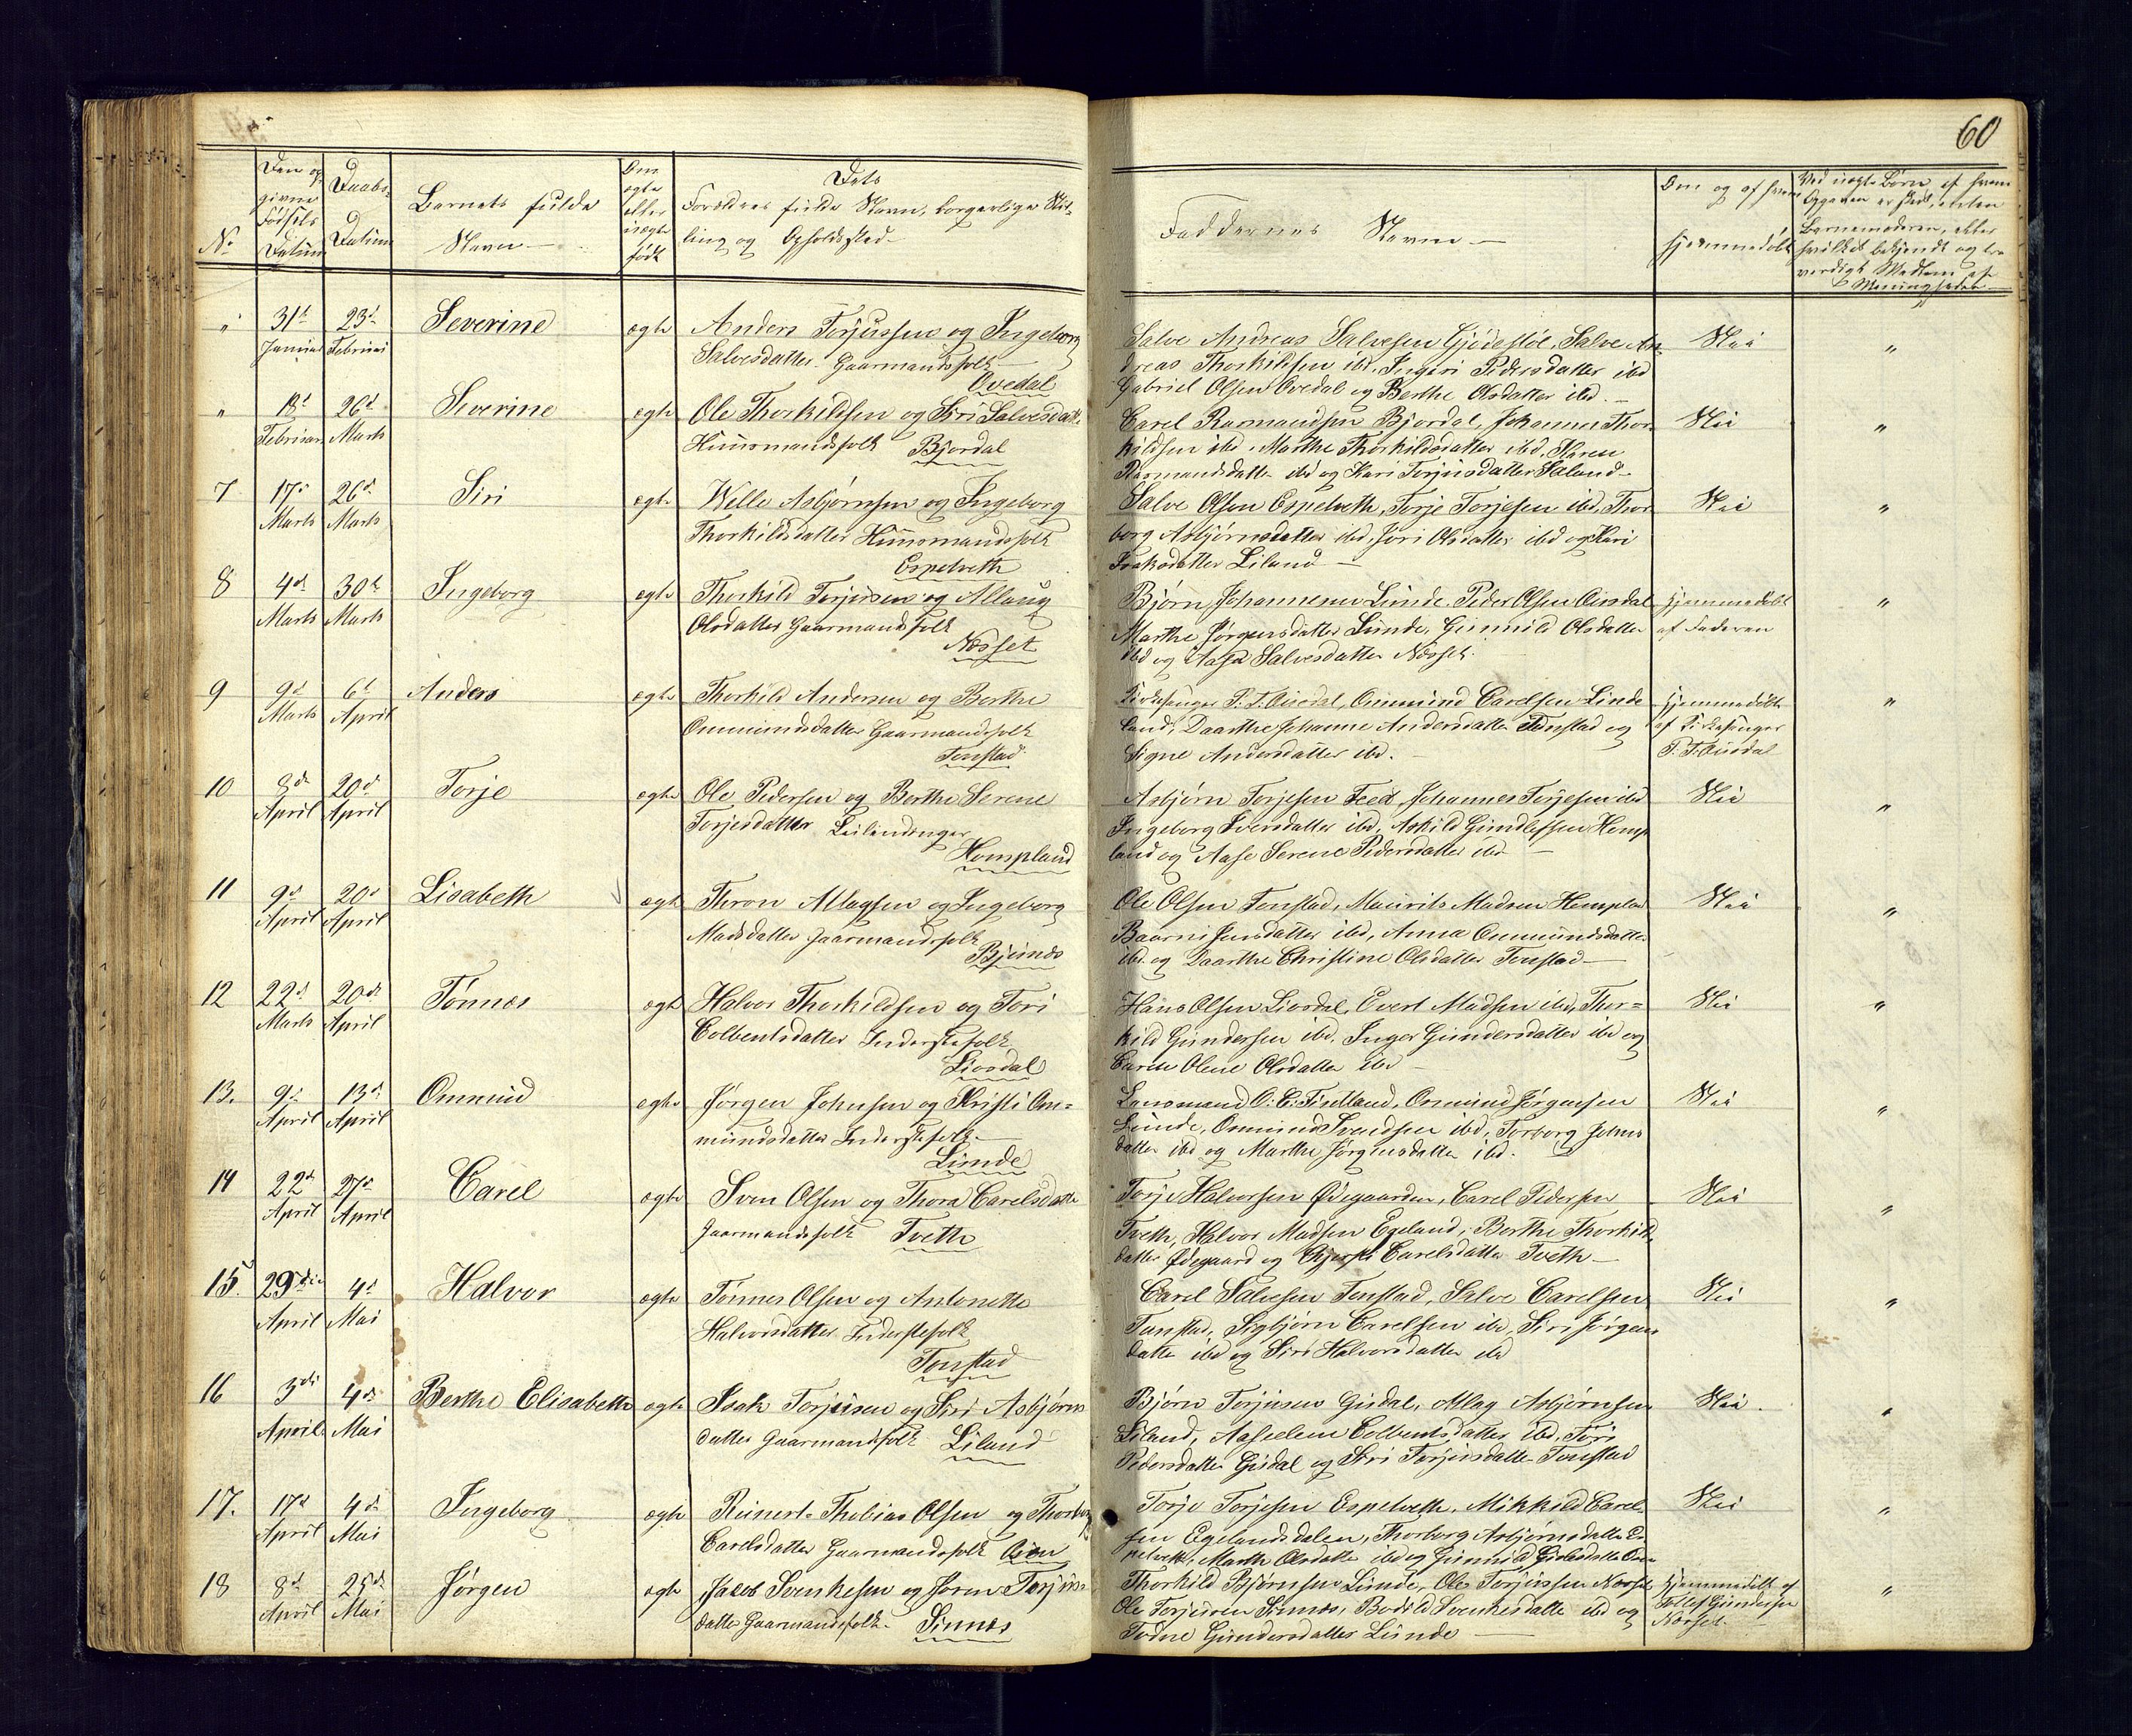 60
No
Den op
givne
Fødsels
Datum
Daabs
Datum
Barnets fulde
Navn
Om
ægte
eller
uægte
født
Dets
Forældres fulde Navn, borgerlige Stil-
ling og Opholdssted
Faddernes Navne
Om og af hvem
hjemmedøbt
Ved uægte Børn, af hvem
Opgaven er skeet, enten
Barnemoderen, eller
hvilket bekjendt og tro
værdigt Medlem af
Menigheden
" 31t 23d Severine ægte Anders Torjussen og Ingeborg
Januar Februar Salvesdatter Gaarmandsfolk
Ovedal
Salve Andreas Salvesen Gjødestøl, Salve An-
dreas Thorkildsen ibd, Ingeri Pedersdatter ibd
Gabriel Olsen Ovedal og Berthe Olsdatter ibd.
Nei "
" 18d 26d Severine ægte Ole Thorkildsen og Siri Salvesdatt.
Februar Marts Huusmandsfolk Bjordal
Carel Rasmundsen Bjordal, Johannes Thor-
kildsen ibd, Marthe Thorkildsdatter ibd, Karen
Rasmundsdatte ibd og Kari Torjusdatter Saland
Nei "
7 17d 26d Siri ægte Welle Asbjørnsen og Ingeborg
Marts Marts Thorkildsdatter Huusmandsfolk
Espetveth
Salve Olsen Espetveth, Torje Torjesen ibd, Thor-
borg Asbjørnsdatter ibd, Jøri Olsdatter ibd og Kari
Isaksdatter Liland
Nei "
8 4d 30t Ingeborg ægte Thorkild Torjusen og Allaug
Marts Marts Olsdatter Gaarmandsfolk
Næsset
Bjørn Johannesen Lunde, Peder Olsen Ousdal
Marthe Jørgensdatter Lunde, Gunnild Olsdatter
ibd og Aasa Salvesdatter Næsset
hjemmedøbt
af Faderen
"
9 9d 6t Anders ægte Thorkild Andersen og Berthe
Marts April Ommundsdatter Gaarmandsfolk
Tonstad
Kirkesanger P. T. Ousdal, Ommund Carelsen Linde
land, Daarthe Johanne Andersdatter Tonstad og
Signe Andersdatter ibd.
hjemmedøbt
af Kirkesanger
P. T. Ousdal
"
10 8d 20d Torje ægte Ole Pedersen og Berthe Serene
April April Torjesdatter Leilændinger
Hompland
Asbjørn Torjesen Feed, Johannes Torjesen ibd
Ingeborg Iversdatter ibd, Askild Gundlefsen Homp
land og Aase Serene Pedersdatter ibd
Nei "
11 9d 20d Lisabeth ægte Thron Allagsen og Ingeborg
April April Madsdatter Gaarmandsfolk
Bjunæs
Ole Olsen Tonstad, Maurits Madsen Homplad
Baarni Jensdatter ibd, Anna Ommundsdatter
ibd og Daarthe Christine Olsdatter Tonstad
Nei "
12 22d 20d Tønnes ægte Halvor Thorkildsen og Tori
Marts April Colbentsdatter Inderstefolk
Liosdal
Hans Olsen Liosdal, Evert Madsen ibd, Thor-
kild Gundersen ibd, Inger Gundersdatter ibd og
Caren Olene Olsdatter ibd
Nei "
13. 9d 13d Ommund ægte Jørgen Johnsen og Kristi Om-
April April mundsdatter Inderstefolk
Lunde
Lensmand O. C. Fintland, Ommund Jørgensen
Lunde, Ommund Svendsen ibd, Torborg Johns
datter ibd og Marthe Jørgensdatter ibd.
Nei "
14 22d 27d Carel ægte Sven Olsen og Thora Carelsdatte
April April Gaarmandsfolk Tveth
Torje Halvorsen Ødegaarden, Carel Pedersen
Tveth, Halvor Madsen Egeland, Berthe Thorkilds
datter Ødegaard og Carelsdatter Tveth
Nei "
15. 29de 4d Halvor ægte Tønnes Olsen og Antonette
April Mai Halvorsdatter Inderstefolk
Tonstad
Carel Salvesen Tonstad, Salve Carelsen
Tonstad, Sigbjørn Carelsen ibd, Siri Jørgens
datte ibd og Siri Halvorsdatter ibd
Nei "
16 3di 4de Berthe Elisabeth ægte Isak Torjusen og Siri Asbjørns
April Mai datter Gaarmandsfolk Liland
Bjørn Torjusen Gusdal, Allag Asbjørnsen
Liland, Aaseelene Colbentsdatter ibd, Tori
Pedersdatter Gusdal og Siri Torjusdatter Tonstad
Nei "
17. 17d 4d Ingeborg ægte Reinert Thobias Olsen og Thorborg
April Mai Carelsdatter Gaarmandsfolk Oien
Torje Torjesen Espetveth, Mikkild Carel-
sen Egelandsdalen, Thorborg Asbjørnsdatter Es
petveth, Marthe Olsdatte ibd og Gunnild
Nei "
18 8d 25d Jørgen ægte Jacob Svenkesen og Joren Torjus-
April Mai datte Gaarmandsfolk. Sinnes
Thorkild Bjørnsen Lunde, Ole Torjussen Næsset
Ole Torjesen Sinnes, Bodild Svenkesdatte ibd og
Todne Gundersdatter Lunde
hjemmedøbt af
Tollef Gundersen
Næsset
"